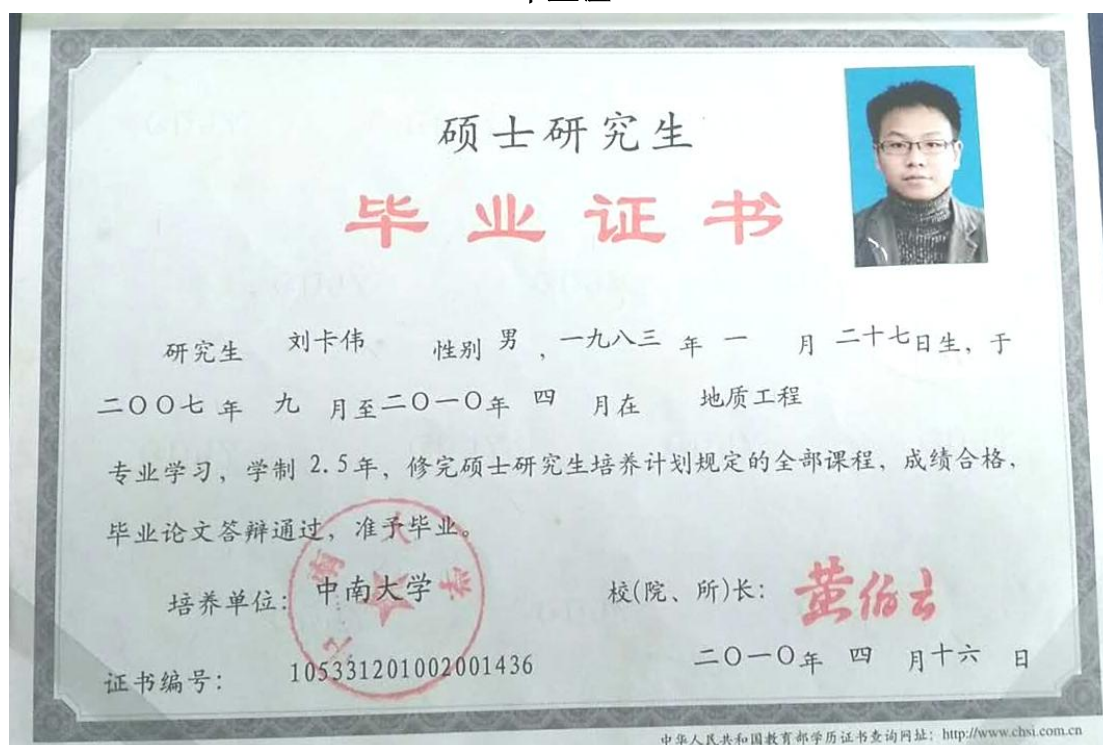 硕士研究生
毕业证书
研究生 刘卡伟 性别 男 ,一九八三 年 一 月 二十七日生, 于
二〇〇七 年 九 月至二〇一〇年 四 月在 地质工程
专业学习, 学制 2.5年, 修完硕士研究生培养计划规定的全部课程, 成绩合格,
毕业论文答辩通过, 准予毕业。
培养单位: 中南大学 校(院、所)长: 黄伯云
二〇一〇年 四 月十六 日
证书编号: 105331201002001436
中华人民共和国教育部学历证书查询网址: http://www.chsi.com.cn